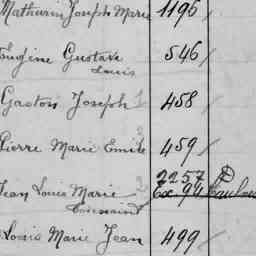 Mathurin Joseph Marie 1195 /
Eugène Gustave 546 /
Louis
Gaston Joseph 1 458 /
Pierre Marie Emile 3 459 /
2257
Jean Louis Marie 2 Ex 94
Toussaint
Louis Marie Jean 499 /